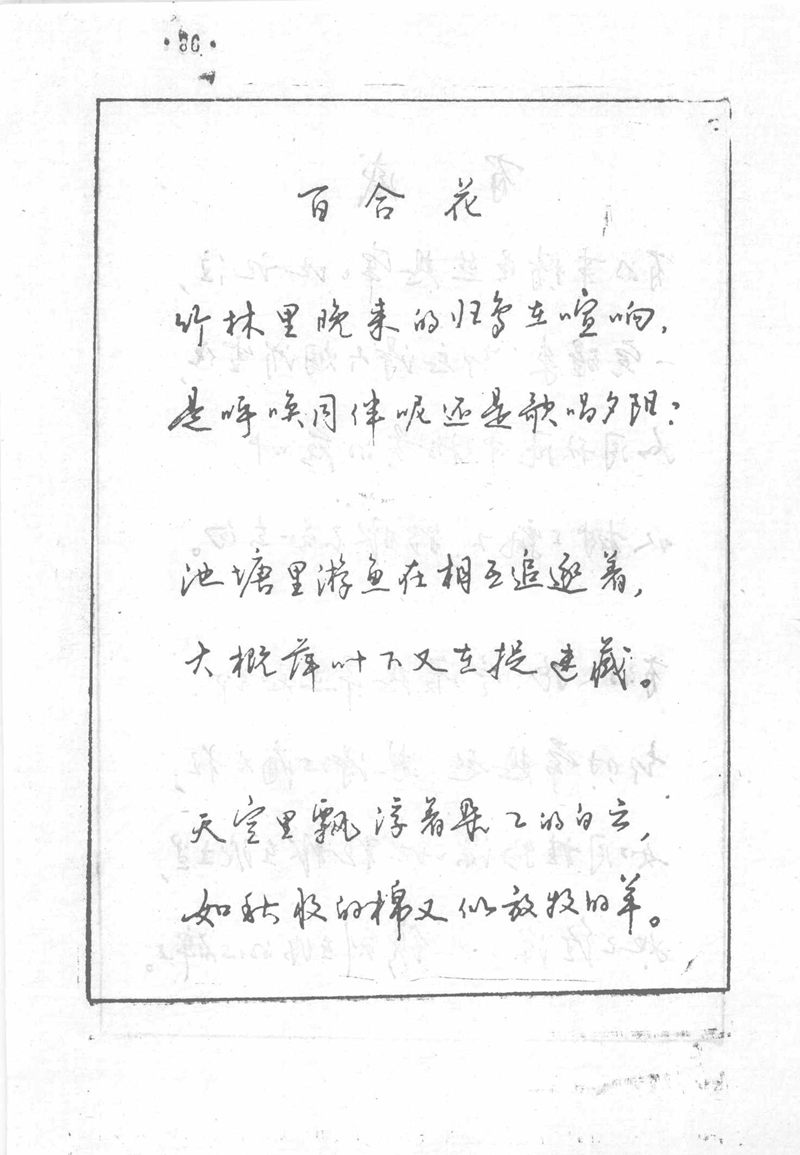 ·86·
百合花
竹林里晚来的归鸟在喧响，
是呼唤同伴呢还是歌唱夕阳？
池塘里游鱼在相互追逐着，
大概荷叶下又在捉迷藏。
天空里飘浮着朵々的白云，
如秋收的棉又似放牧的羊。